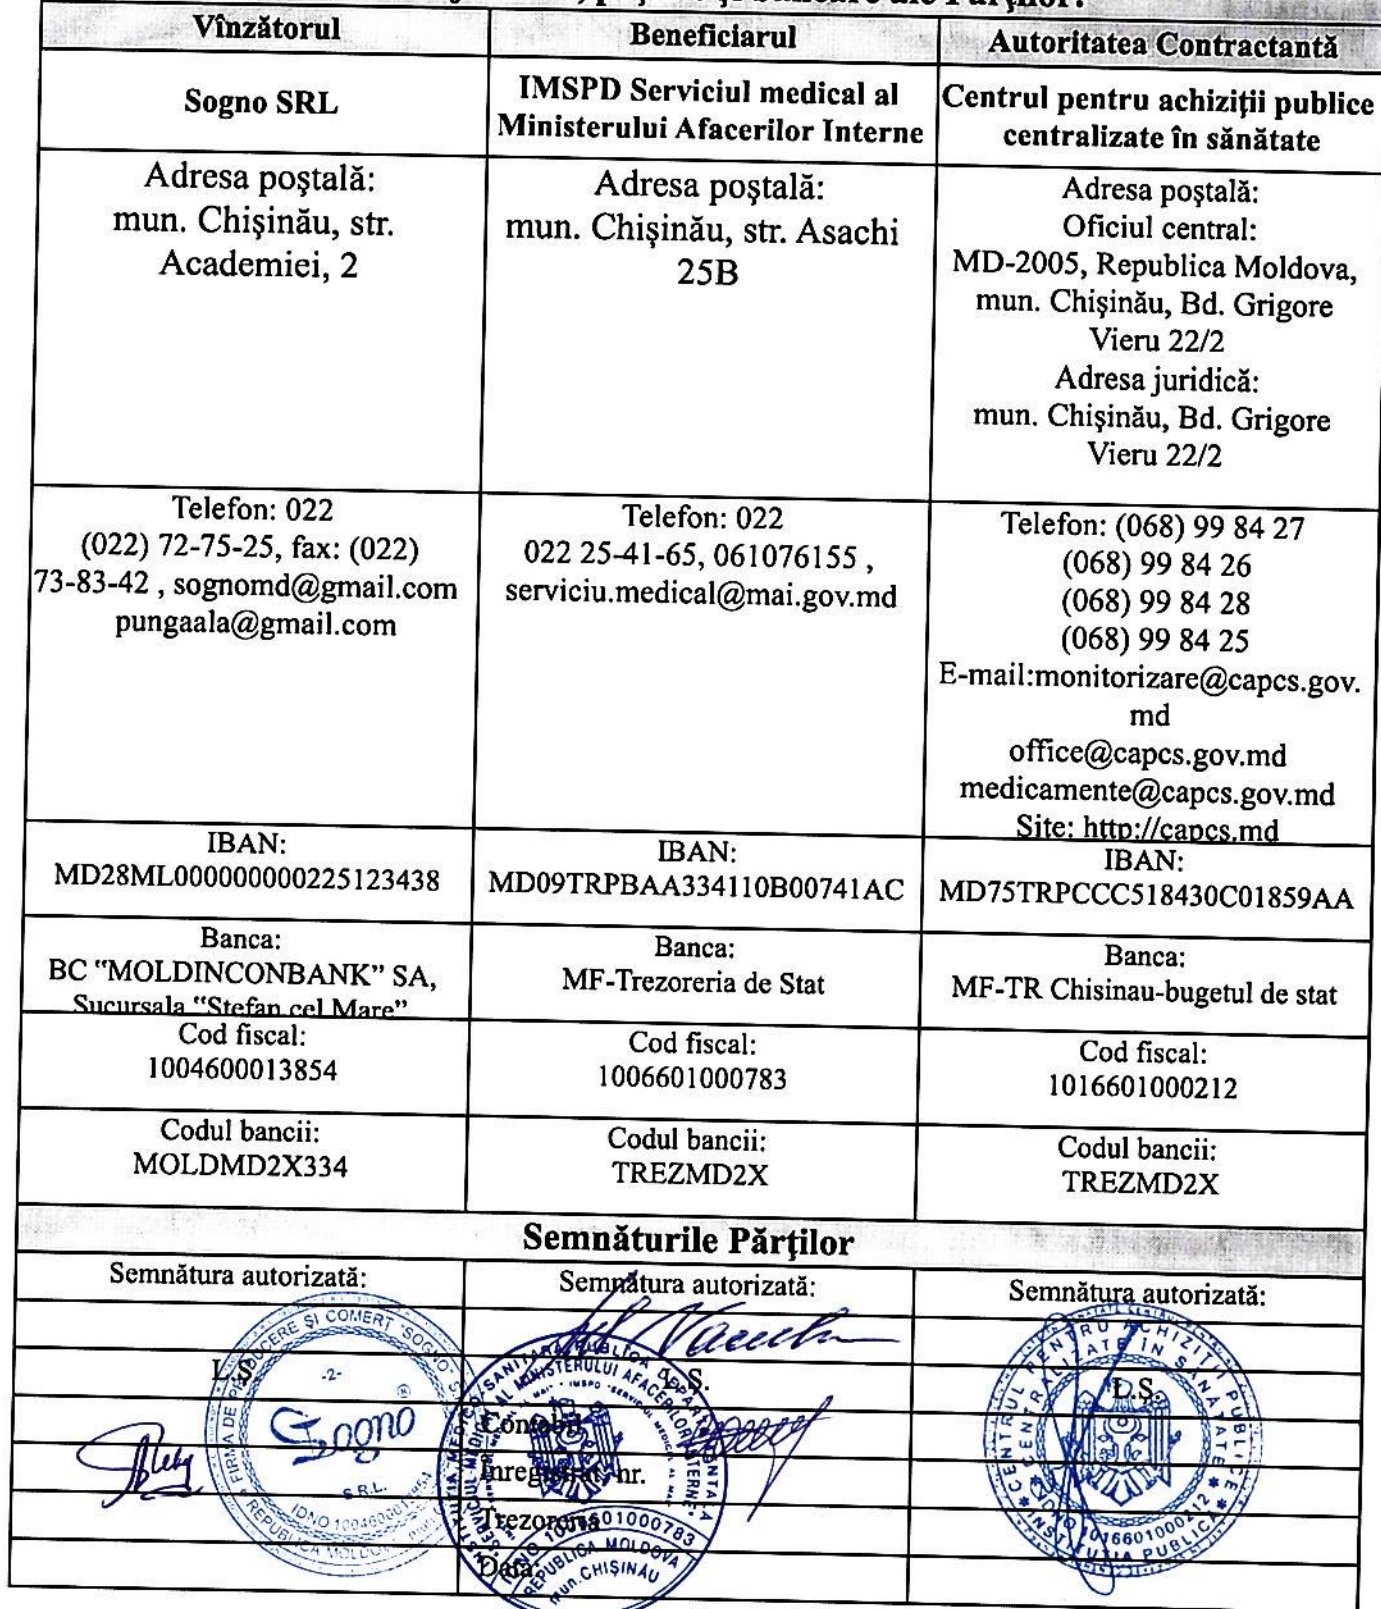 Vînzătorul
Beneficiarul
Autoritatea Contractantă
Sogno SRL
IMSPD Serviciul medical al
Ministerului Afacerilor Interne
Centrul pentru achiziții publice
centralizate în sănătate
Adresa poştală:
mun. Chişinău, str.
Academiei, 2
Adresa poştală:
mun. Chişinău, str. Asachi
25B
Adresa poştală:
Oficiul central:
MD-2005, Republica Moldova,
mun. Chişinău, Bd. Grigore
Vieru 22/2
Adresa juridică:
mun. Chişinău, Bd. Grigore
Vieru 22/2
Telefon: 022
(022) 72-75-25, fax: (022)
73-83-42 , sognomd@gmail.com
pungaala@gmail.com
Telefon: 022
022 25-41-65, 061076155 ,
serviciu.medical@mai.gov.md
Telefon: (068) 99 84 27
(068) 99 84 26
(068) 99 84 28
(068) 99 84 25
E-mail:monitorizare@capcs.gov.
md
office@capcs.gov.md
medicamente@capcs.gov.md
Site: http://capcs.md
IBAN:
MD28ML000000000225123438
IBAN:
MD09TRPBAA334110B00741AC
IBAN:
MD75TRPCCC518430C01859AA
Banca:
BC “MOLDINCONBANK” SA,
Sucursala “Stefan cel Mare”
Banca:
MF-Trezoreria de Stat
Banca:
MF-TR Chisinau-bugetul de stat
Cod fiscal:
1004600013854
Cod fiscal:
1006601000783
Cod fiscal:
1016601000212
Codul bancii:
MOLDMD2X334
Codul bancii:
TREZMD2X
Codul bancii:
TREZMD2X
Semnăturile Părţilor
Semnătura autorizată:
Semnătura autorizată:
Semnătura autorizată:
L.Ş.
L.Ş.
L.Ş.
Contabil:
Înregistrat nr.
Trezoreria
Data:
FIRMA DE PRODUCERE ŞI COMERŢ "SOGNO"
-2-
Sogno
S.R.L.
REPUBLICA MOLDOVA
MINISTERULUI AFACERILOR INTERNE
REPUBLICA MOLDOVA
mun. CHIŞINĂU
CENTRUL PENTRU ACHIZIŢII PUBLICE
CENTRALIZATE IN SĂNĂTATE
IDNO 1016601000212
INSTITUŢIA PUBLICĂ